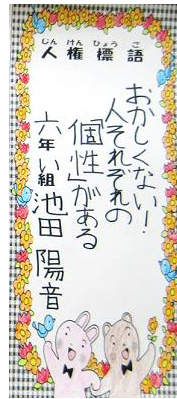 じん けん ひょう ご
人権標語
おかしくない！
人それぞれの
「個性」がある
六年い組 池田 陽音